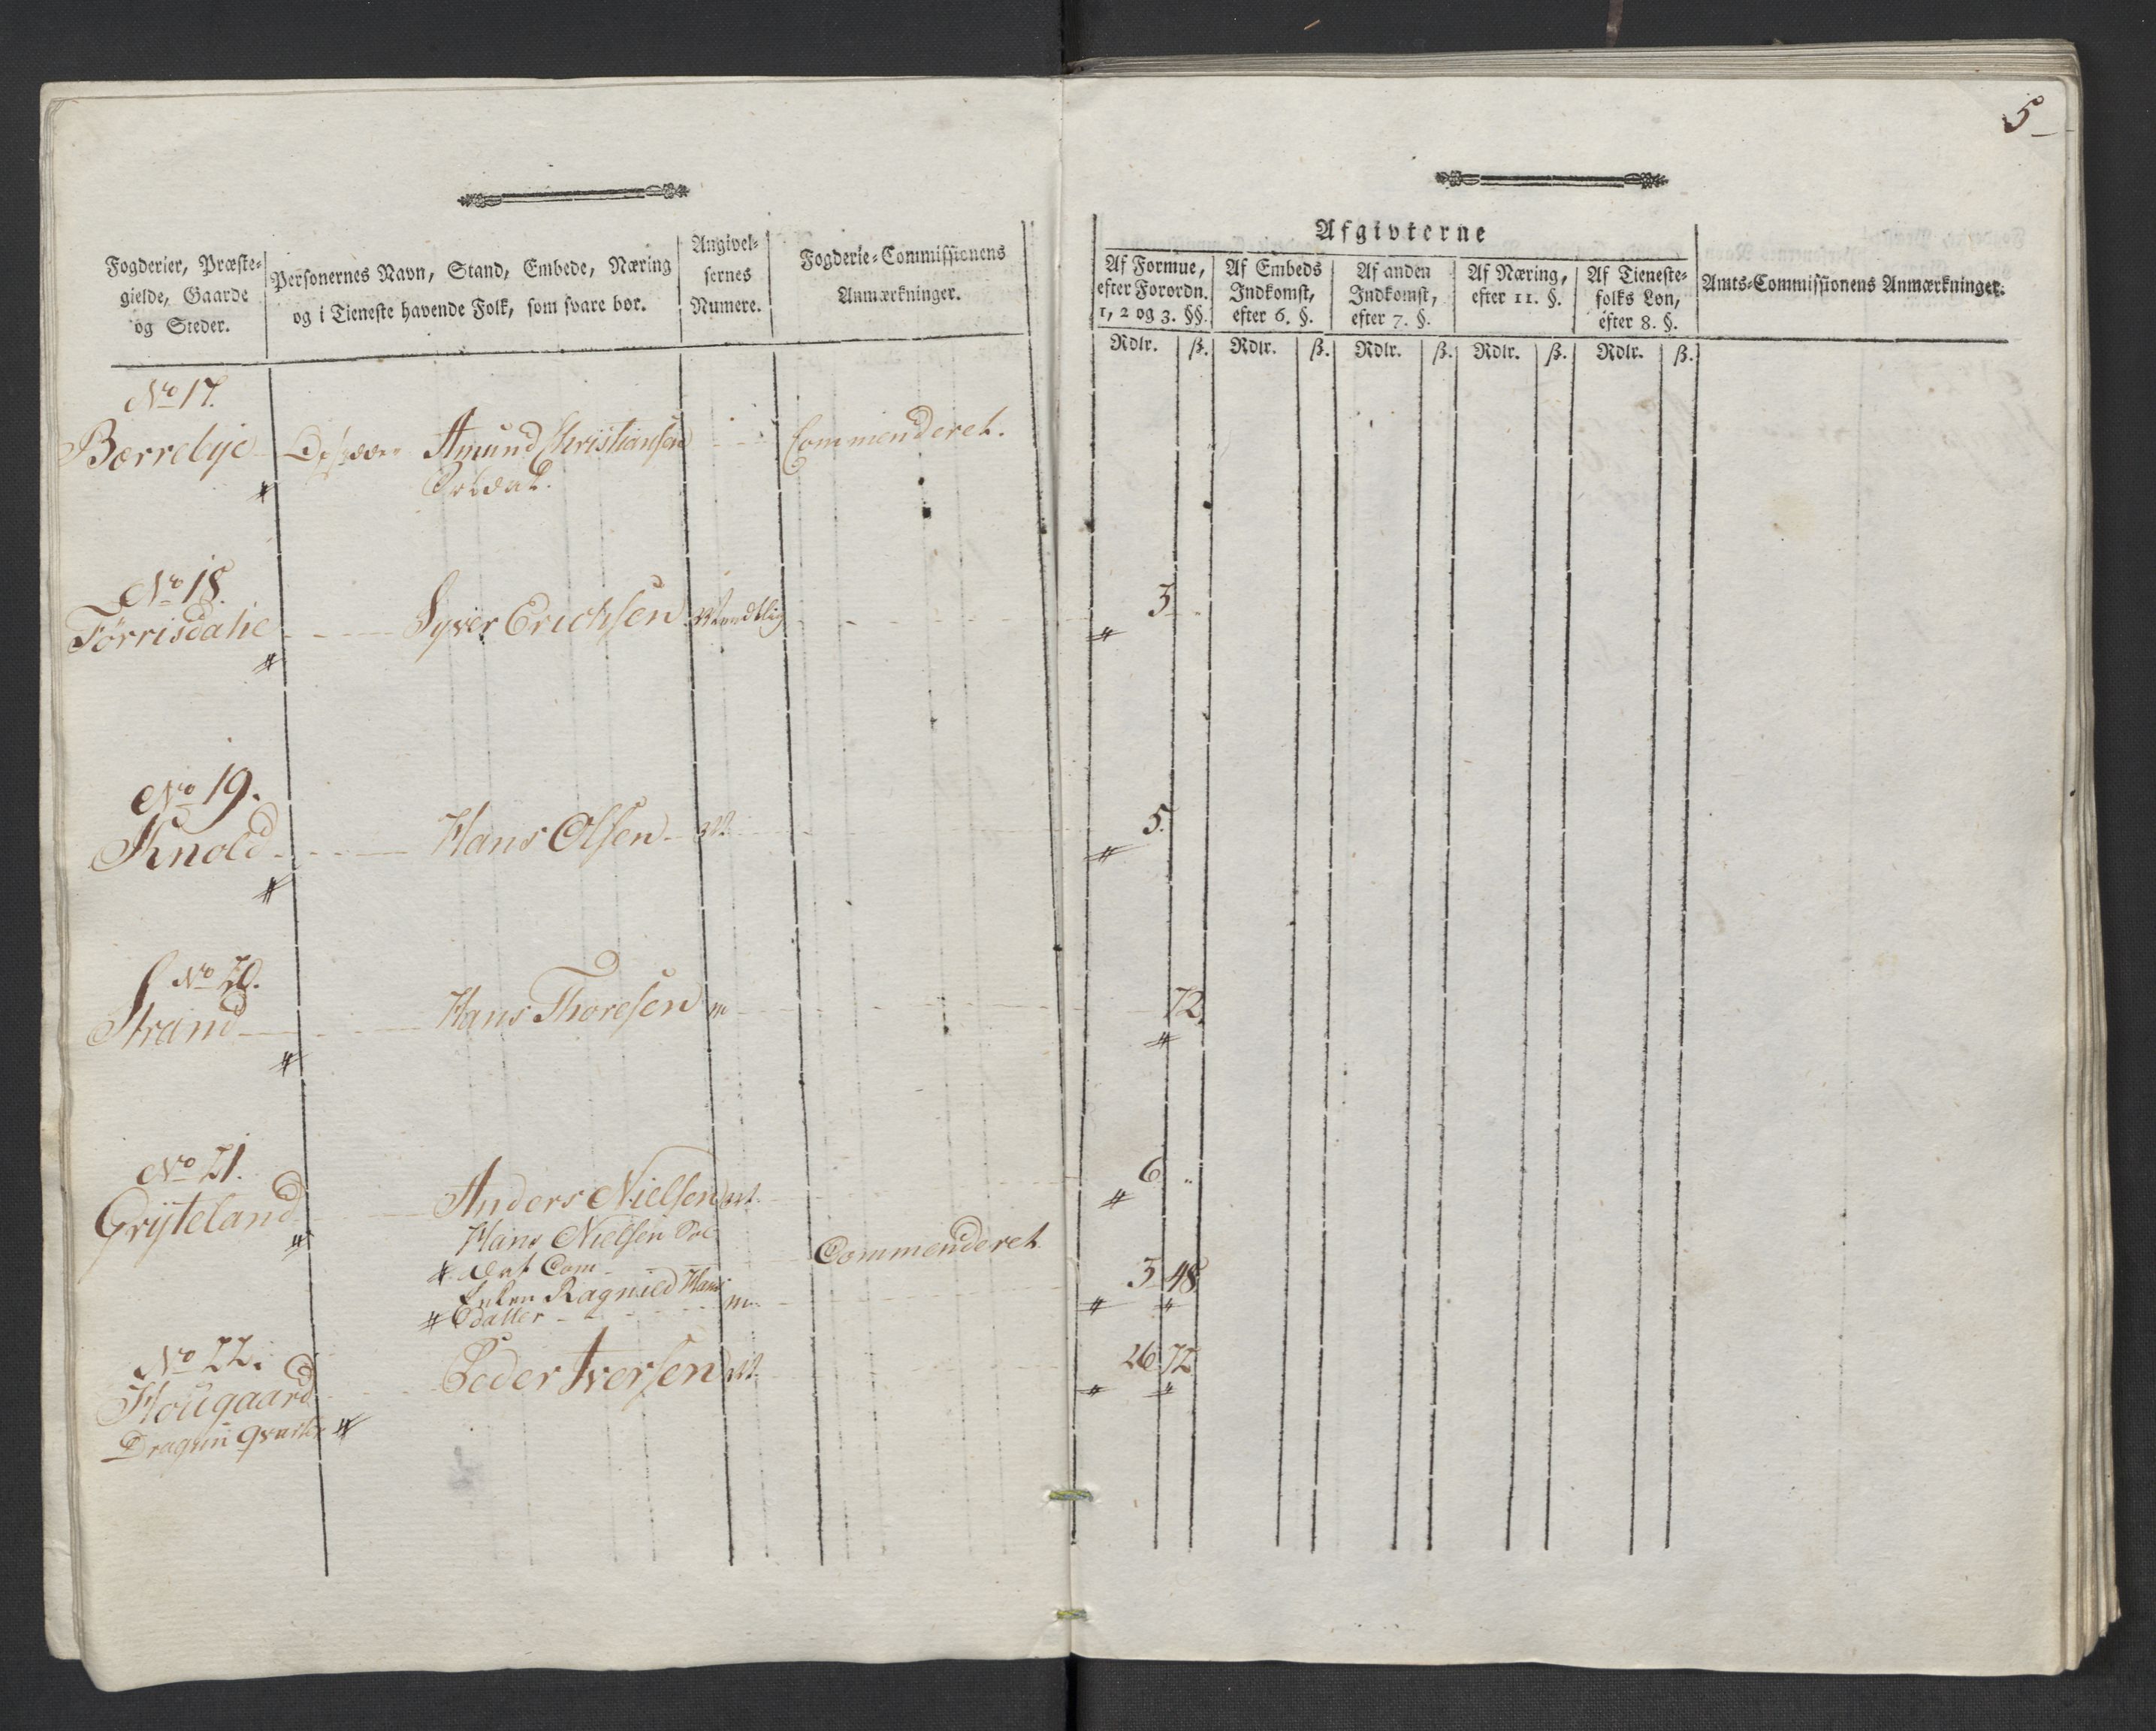 5
Fogderier, Præste-
gielde, Gaarde
og Steder.
Personernes Navn, Stand, Embede, Næring
og i Tieneste havende Folk, som svare bør.
Angivel-
sernes
Numere.
Fogderie-Commissionens
Anmærkninger.
Afgivterne
Af Formue,
efter Forordn.
1, 2 og 3. §§.
Af Embeds
Indkomst,
efter 6. §.
Af anden
Indkomst,
efter 7. §.
Af Næring,
efter 11. §.
Af Tieneste-
folks Løn,
efter 8. §.
Amts-Commissionens Anmærkninger.
Rdlr. ß. Rdlr. ß. Rdlr. ß. Rdlr. ß. Rdlr. ß.
No 17.
Bærrebye Amund Christiansen Commenderet.
Soldat.
No 18.
Förrisdahl Syver Erichsen Mundtlig 3 "
No 19.
Knold Hans Olsen M 5.
No 20.
Strand Hans Thoresen m 72.
No 21.
Grÿteland Anders Nielsen M. 6 "
Hans Nielsen Sol
dat Com Commenderet
Enken Ragnild Hans
datter m 3 48
No 22.
Hougaard Peder Iversen M. 26 72
Dragun Qvarter